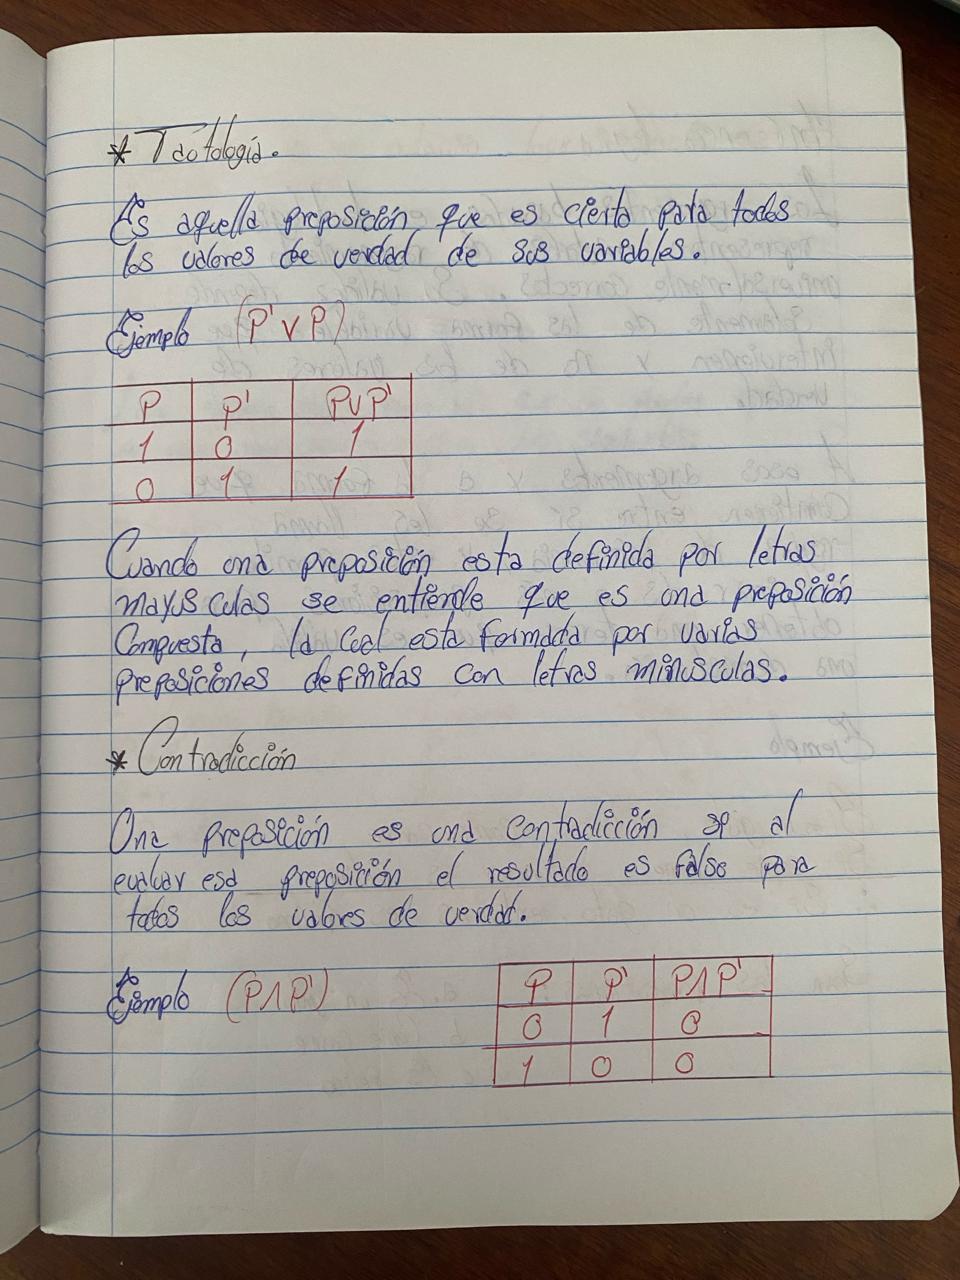 * Taotología.
Es aquella preposición, que es cierta para todos
los valores de verdad de sus variables.
Ejemplo (P' ∨ P)
P P' P∨P'
1 0 1
0 1 1
Cuando una preposición esta definida por letras
mayusculas se entiende que es una preposición
Compuesta, la cual esta formada por varias
preposiciones definidas con letras minusculas.
* Contradicción
Una preposición es una contradicción si al
evaluar esa preposición el resultado es falso para
todos los valores de verdad.
Ejemplo (P∧P')
P P' P∧P'
0 1 0
1 0 0